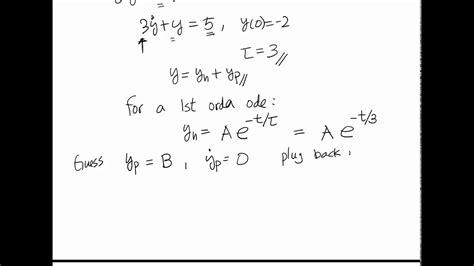 3ẏ+y = 5, y(0)=-2
τ = 3 //
y = yₕ + yₚ //
for a 1st orda ode:
yₕ = A e^{-t/τ} = A e^{-t/3}
Guess yₚ = B , ẏₚ = 0 plug back ,